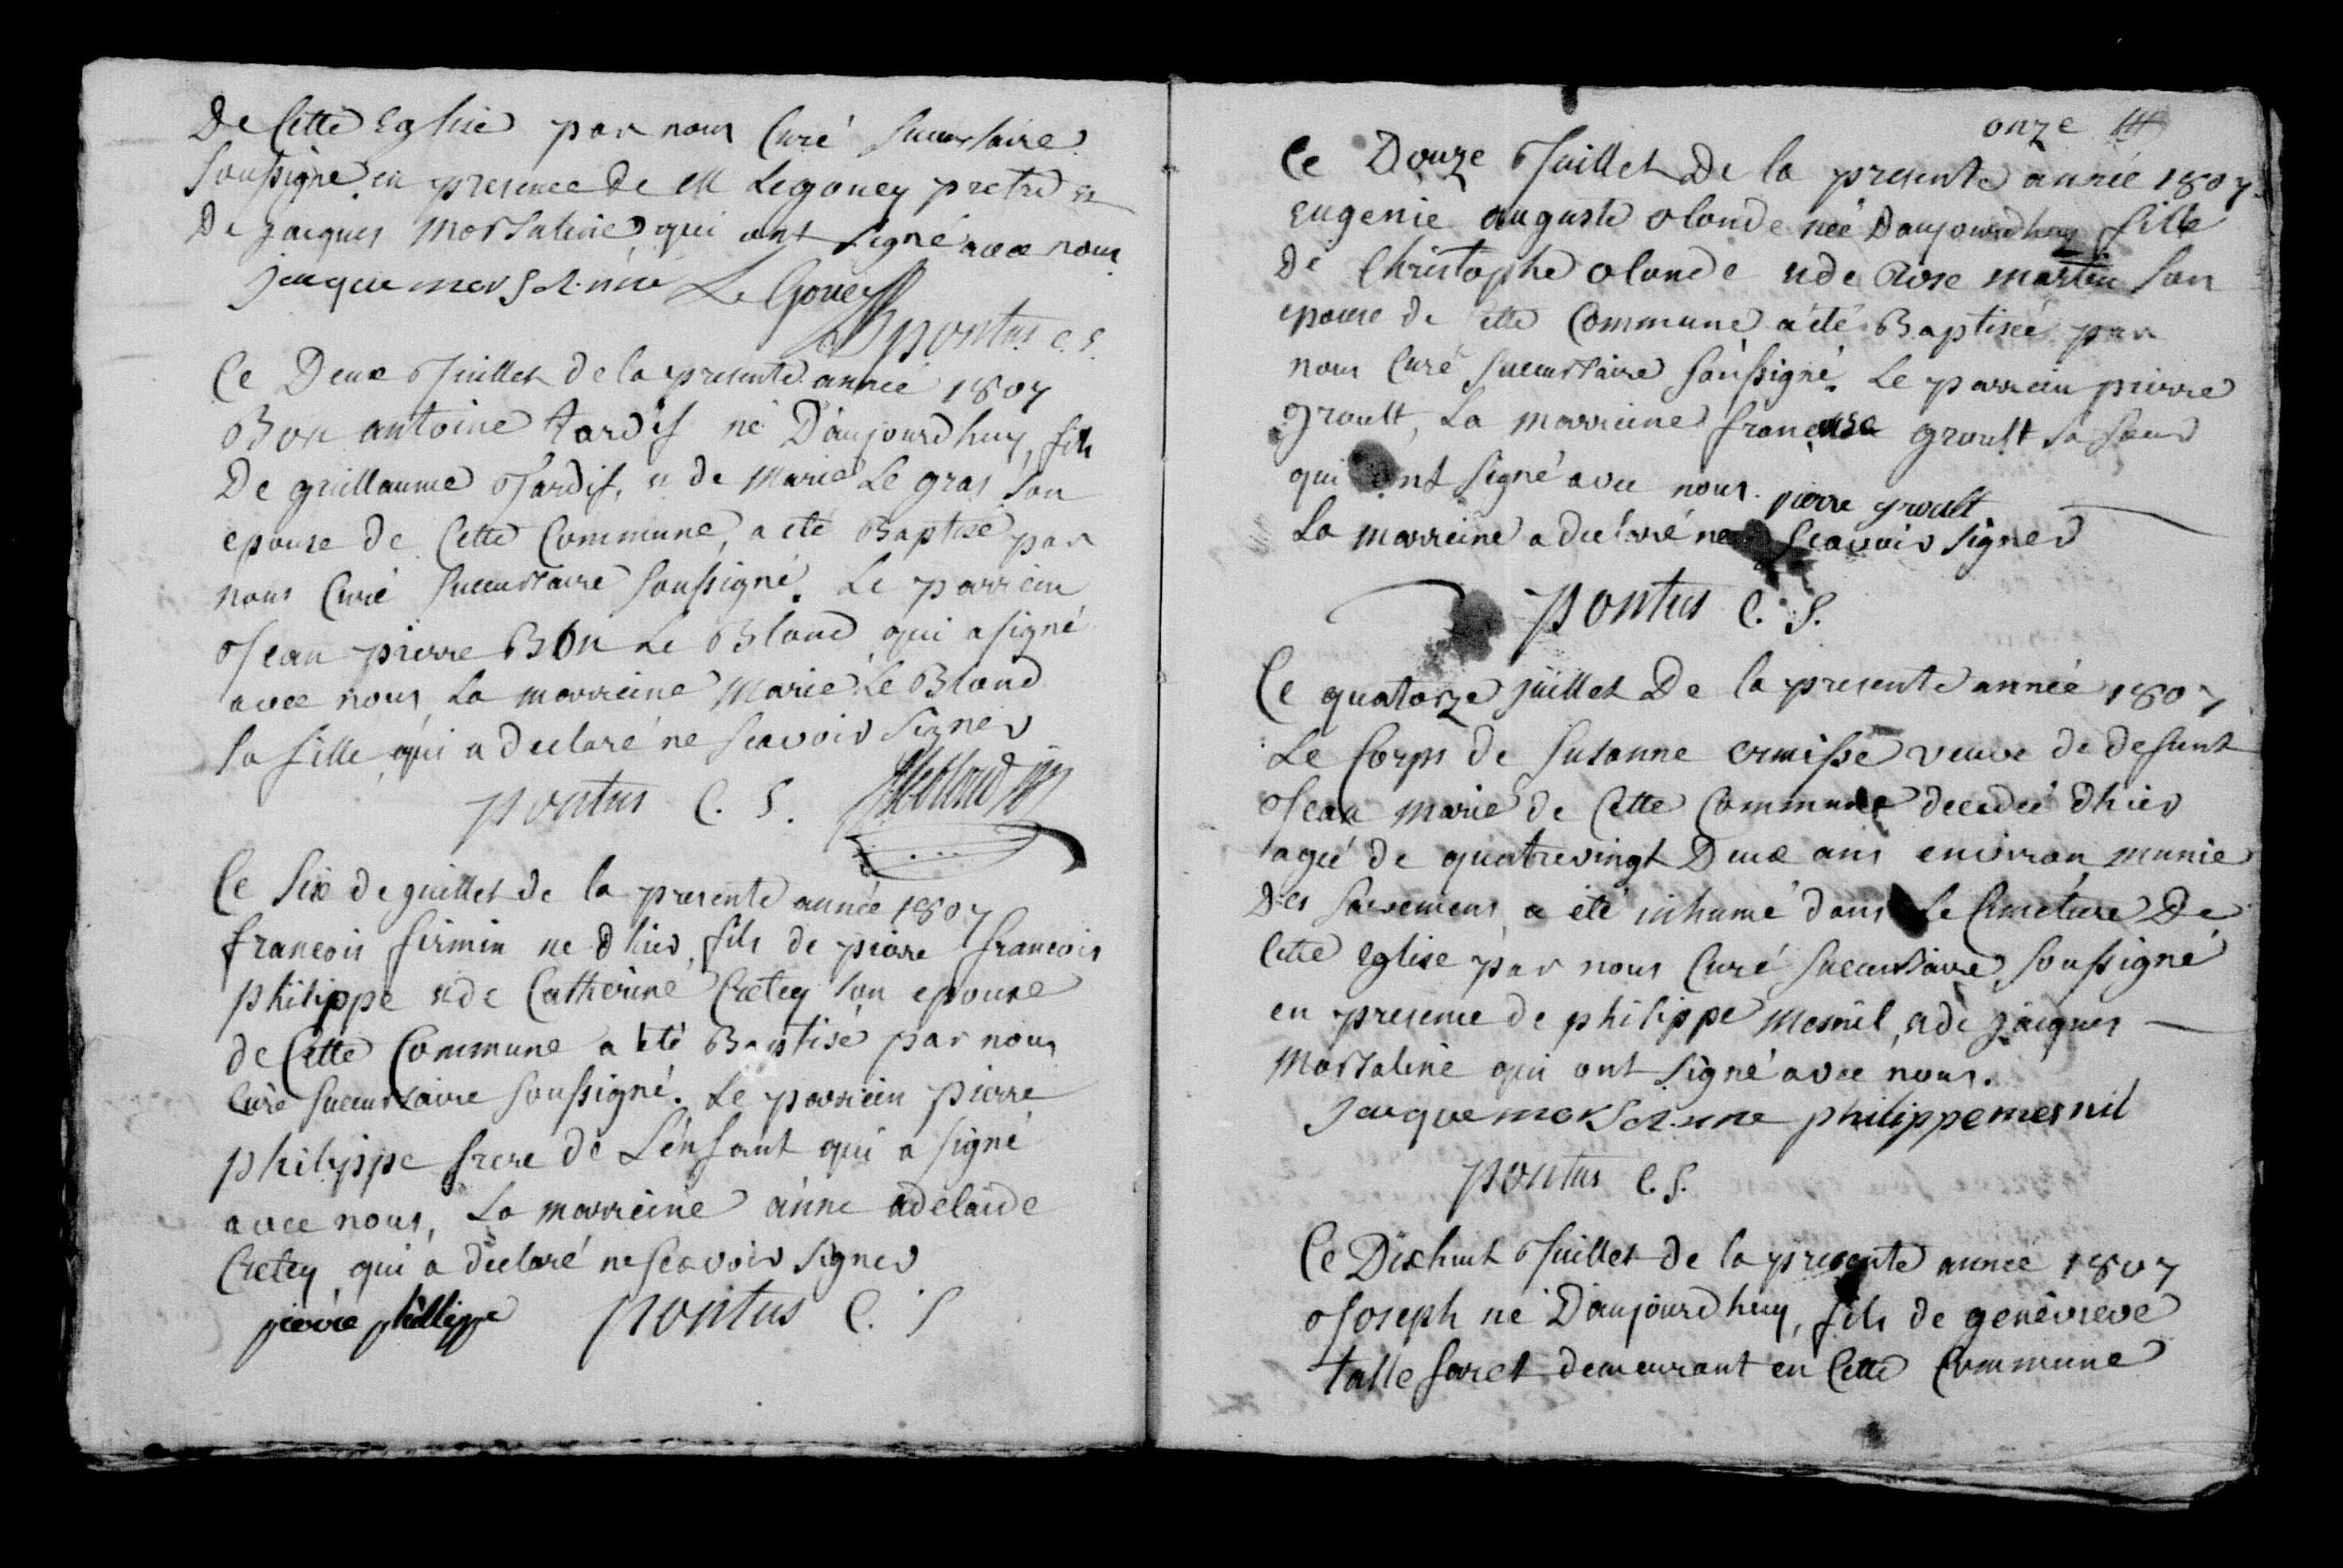 De Cette Eglise par nous Curé succursaire
soussigné en presence de M Legoney pretre et
De jacques Morsaline qui ont signé avec nous
jacque morsaline Le Goney
pontus C. S.
Ce Deux Juillet de la presente année 1807
Bon antoine tardif né D'aujourdhuy, fils
De guillaume Tardif, et de Marie Le gras son
epouse de Cette Commune, a eté Baptisé par
nous Curé succursaire soussigné. Le parrein
Jean pierre Bon Le Blond qui a signé
avec nous, La marreine Marie Le Blond
sa fille qui a declaré ne scavoir signer
pontus C. S. Leblond
Ce Six de juillet de la presente année 1807
francois firmin ne d'hier, fils de pierre francois
philippe et de Catherine Cretey son epouse
de Cette Commune a été Baptisé par nous
Curé succursaire soussigné. Le parrein pierre
philippe frere de L'enfant qui a signé
avec nous, La marreine anne adelaide
Cretey qui a declaré ne scavoir signer
pierre phillippe pontus C. S
onze
Ce Douze Juillet De la presente année 1807
Eugenie auguste olonde née D'aujourdhuy fille
De Christophe olonde et de Rose martin son
epouse de cette Commune a été Baptisée par
nous Curé succursaire soussigné. Le parrein pierre
groult, La marreine francoise groult sa soeur
qui ont signé avec nous. pierre groult
La marreine a declaré ne scavoir signer
pontus C. S.
Ce quatorze juillet De la presente année 1807
Le Corps de Susanne ermisse veuve de defunt
Jean Marie de Cette Commune decedée d'hier
agée de quatrevingt Deux ans environ munie
Des sacremens, a été inhumé dans Le Cimetiere De
Cette eglise par nous Curé succursaire soussigné
en presence de philippe Mesnil, et de jacques
Morsaline qui ont signé avec nous.
jacque morsaline philippe mesnil
pontus C. S.
Ce Dixhuit Juillet de la presente année 1807
Joseph né D'aujourdhuy, fils de genevieve
talle faret demeurant en Cette Commune